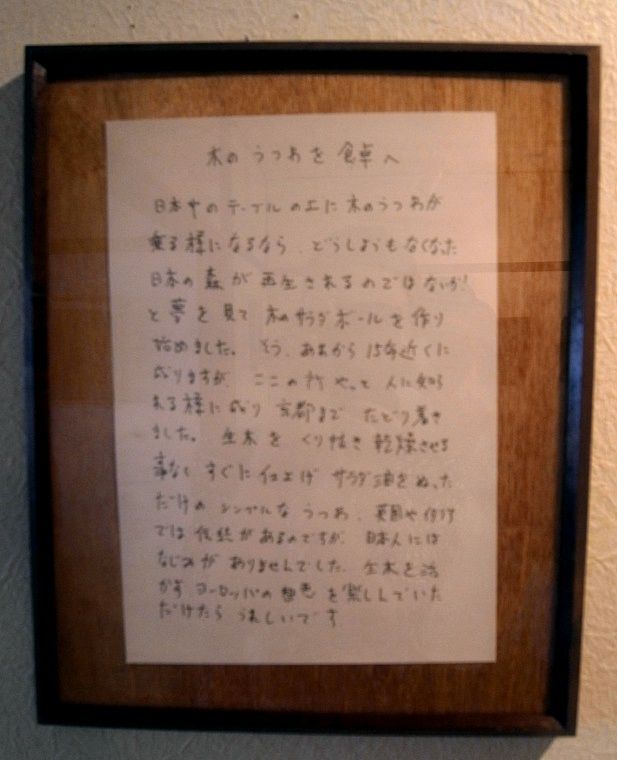 木のうつわを食卓へ
日本中のテーブルの上に木のうつわが
乗る様になるなら、どうしようもなくなった
日本の森が再生されるのではないか!
と夢を見て木のサラダボールを作り
始めました。そう、あれから15年近くに
成りますが、ここの所やっと人に知ら
れる様に成り京都までたどり着き
ました。生木をくり抜き乾燥させる
事なくすぐに仕上げサラダ油をぬった
だけのシンプルなうつわ、英国や
では伝統があるのですが、日本人には
なじみがありませんでした。生木を活
かすヨーロッパの を楽しんでいた
だけたらうれしいです